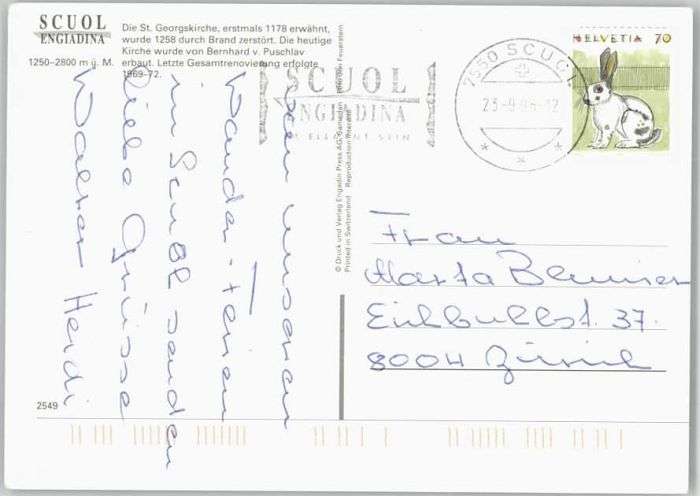 SCUOL
ENGIADINA
1250–2800 m ü. M.
Die St. Georgskirche, erstmals 1178 erwähnt,
wurde 1258 durch Brand zerstört. Die heutige
Kirche wurde von Bernhard v. Puschlav
erbaut. Letzte Gesamtrenovierung erfolgte
1969-72.
SCUOL
ENGIADINA
7550 SCUOL
HELVETIA 70
© Druck und Verlag Engadin Press AG, Samedan
Printed in Switzerland Reproduction
Von unseren
Wander-Ferien
in Scuol senden
liebe Grüsse
Walter Heidi
Frau
Marta
37.
8004 Zürich
2549